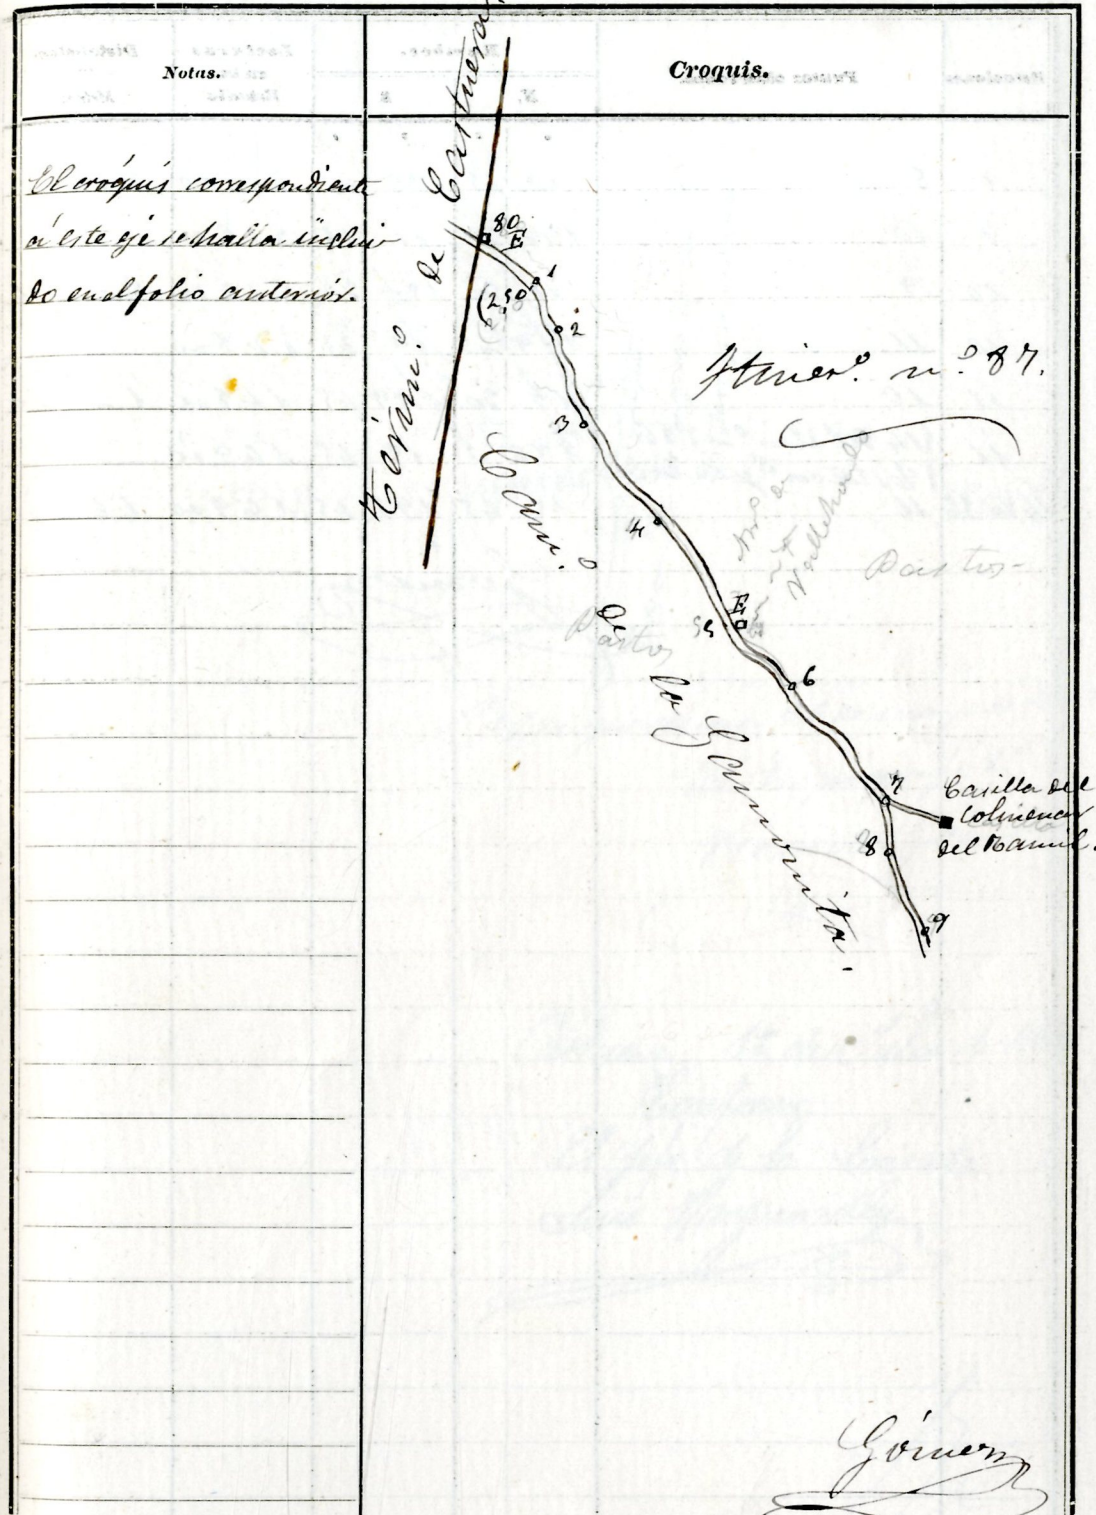 Notas.
Croquis.
El cróquis correspondiente
á este eje se halla inclui-
do en el folio anteriór.
Térmº. de Castuera.
80
E
1
(2,50
2
Itinerº. nº. 87.
3
4
Camº. de la Gamonita.
Pastos
Pastos
E
5
6
7
Casilla del
Colmenar
del
8
9
Gómez